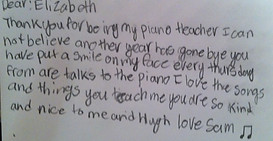 Dear: Elizabeth
Thank you for being my piano teacher I can
not believe another year has gone bye you
have put a smile on my face every thursday
from are talks to the piano I love the songs
and things you teach me you are so kind
and nice to me and Hugh love Sam ♫